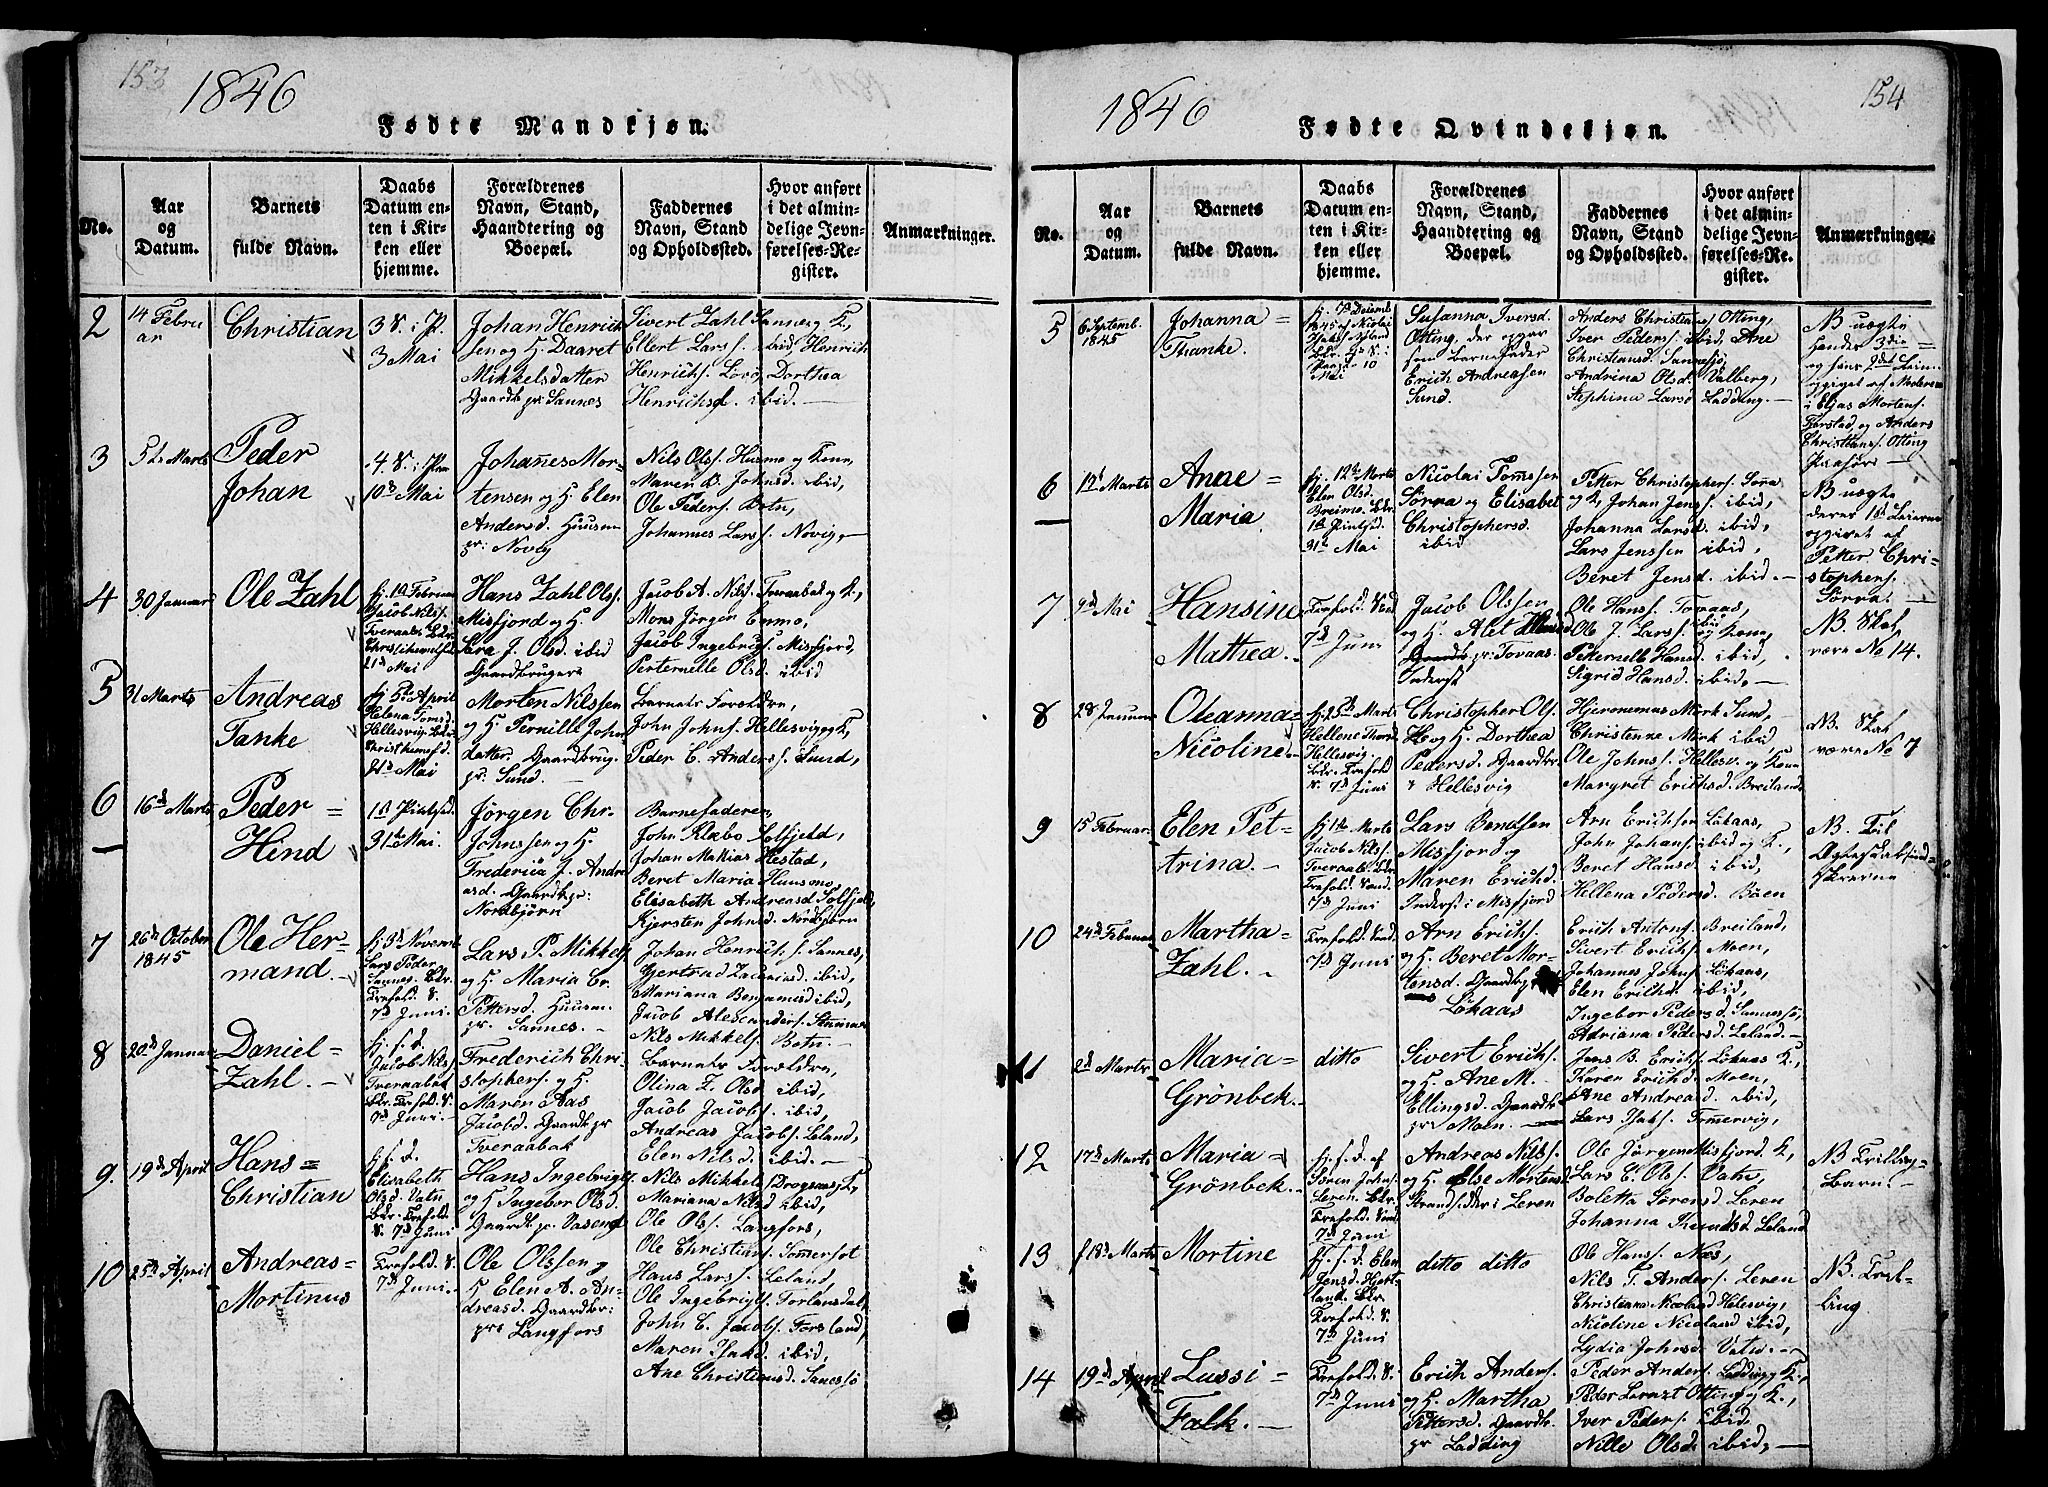 153
1846
Fødte Mandkjøn.
No.
Aar og Datum.
Barnets fulde Navn.
Daabs Datum enten i Kirken eller hjemme.
Forældrenes Navn, Stand, Haandtering og Boepæl.
Faddernes Navn, Stand og Opholdssted.
Hvor anført i det almindelige Jevnførelses-Register.
Anmærkninger.
2
14 Febru
ar
Christian
3 S. i P.
3 Mai
Johan Henrich
sen og H. Daaret
Mikkelsdatter
Gaardb pr Sannes
Sivert Zahl Sannes og K,
Ellert Larss. ibid, Henrich
Henrichs. Dorthea
Henrichsd. ibid. —
3
5te Marts
Peder
Johan
4. S. i Paa
10d Mai
Johañes Mor-
tensen og H. Elen
Andersd. Huusm
pr: Novig
Nils Olss. Husmo og Kone,
Maren B. Johnsd. ibid,
Ole Peders. Botn,
Johannes Larss. Novig, —
4
30 Januar
Ole Zahl
Jacob Nilss.
Tveraabak
21d Mai
Hans Zahl Olss.
Misfjord og H.
Sara J. Olsd. ibid
Gaardbrugere
Jacob A. Nilss. Tveraabak og K,
Mons Jørgen Emmo,
Jacob Ingebrigs. Misfjord,
Perternelle Olsd. ibid
5
31 Marts
Andreas
Tanke
hj 5te April
Helena Tomsd.
Hellesvig
21d Mai
Morten Nilssen
og H. Pernille John
datter. Gaardbrug.
pr. Sund. —
Barnets Forældre,
John Johns. Hellesvig og K,
Peder C. Anders. Sund,
6
16d Marts
Peder =
Hind
1ste Pintsed.
31te Mai.
Jørgen Chr.
Johnssen og H.
Frederica J. Andre
asd. Gaardb pr:
Nordbjørn
Barnefaderen,
John Klæbo Solfjeld,
Johan Mathias Hestad,
Beret Maria Huusmo,
Elisabeth Andreasd Solfjeld,
Kjersten Johnsd. Nordbjørn
7
26d October
1845
Ole Her-
mand. —
hj 3d Novemb
Lars Peder
Sannes
Trefold. S.
7d Juni.
Lars P. Mikkels
og H. Maria Cr.
Petters. Huusm
pr. Sannes. —
Johan Henrichs. Sannes,
Gjertrud Zacariasd. ibid,
Mariana Benjamsd ibid,
Jacob Alexanders.
Nils Mikkels. Botn —
8
20d Januar
Daniel =
Zahl. —
hj. s. d.
Jacob Nilss.
Tveraabak
Trefold. S.
7d Juni.
Frederich Chri-
stophers. og H.
Maren Aas
Jacobd. Gaardb pr
Tveraabak
Barnets Forældre,
Olina Z. Olsd ibid,
Jacob Jacobs. ibid,
Andreas Jacobs. Leland,
Elen Nilsd. ibid. —
9.
19d April
Hans =
Christian
hj. s. d.
Elisabeth
Olsd. Vatn,
Trefold.
S. 7d Juni
Hans Ingebrigts
og H Ingebor Olsd.
Gaardb pr. Vaseng
Nils Mikkels Drogsaas, K,
Mariana Nilsd ibid,
Ole Olss. Langfors,
Ole Christians. Somersæt
10
25d April
Andreas =
Mortinus
Trefold. S.
7d Juni.
Ole Olssen og
H Elen A. An-
dreasd. Gaardbr:
pr: Langfors
Hans Larss. Leland,
Ole Ingebrigts. Forlandsdal,
John C. Jacobs. Forsland,
Maren Isaksd. ibid,
Ane Christiansd. Sanesø
154
1846
Fødte Qvindekjøn.
No.
Aar og Datum.
Barnets fulde Navn.
Daabs Datum enten i Kirken eller hjemme.
Forældrenes Navn, Stand, Haandtering og Boepæl.
Faddernes Navn, Stand og Opholdssted.
Hvor anført i det almindelige Jevnførelses-Register.
Anmærkninger.
5
6 Septemb.
1845
Johanna =
Thanke.
1845 af Nicolai
10
Mai
Susanna Iversd.
Otting, der opgav
som Barnefader
Erich Andreasen
Sund.
Anders Christians Otting,
Iver Peders. ibid, Ane
Christiansd. Sannesø,
Andrina Olsd. Valberg,
Stephina Larsd Ladding. —
NB uægte
hendes 3die =
og hans 2det Leierm
opgivet af Moderen
i Elias Mortens.
og Anders
Christians. Otting
Paahør —
6
12d Marts
Anae =
Maria
hj. 12te Marts
Elen Olsd.
1ste Pintsed.
31te Mai
Nicolai Tomssen
Sørra og Elisabet
Christophersd.
ibid
Petter Christophers. Søra
og K, Johan Jens. ibid,
Johanna Larsd. ibid,
Lars Jenssen ibid,
Beret Jensd. ibid. —
NB uægte
deres 1ste Leierm
opgivet af
Petter Chri-
stophers.
Sørra. —
7
9d Mai
Hansine
Mathea. —
Trefold. Sønd
7d Juni
Jacob Olssen
og H. Alet Hansd
pr: Tovaas.
Inderst
Ole Hanss. Tovaas,
Ole J. Larss. og Kone,
Petternelle Hansd. ibid,
Sigrid Hansd. ibid, —
NB. Skal
være No 14.
8
28 Januar
Oleanna =
Nicoline. —
hj 25de Marts
Hellene
Hellesvig
Trefold
S. 7d Juni
Christopher Ols.
og H. Dorthea
Pedersd. Gaardbr
i Hellesvig
Hjeronemus Mørk Sund,
Christenne Mørk ibid,
Ole Johns. Hellesv. og Kone
Margret Erichsd. Breiland
NB. Skal
være No 7
9
15 Februar
Elen Pet-
trina. —
Marts
Jacob Nilss.
Tveraabak
Trefold. Sønd.
7d Juni
Lars Bendsen
Misfjord og
Maren Erichsd
Inderst i Misfjord
Arn Erichsen Løkaas,
John Johans. ibid og K,
Beret Hansd. ibid,
Hellena Pedersd. Bøen
NB. Til
Ægteskab ind=
skrevne
10
24d Februar
Martha =
Zahl. —
Trefold. Sønd
7d Juni
Arn Erichs.
og H. Beret Mor-
tensd. Gaardb pr
Løkaas
Erich Antons. Breiland,
Sivert Erichs. Moen,
Johannes Johns. Løkaas,
Elen Erichsd. ibid,
Ingebor Pedersd. Sannessø,
Adriana Pedersd. Leland. —
11
2d Marts
Maria =
Grønbek. —
ditto
Sivert Erichs.
og H. Ane M.
Ellingsd. Gaardb
pr Moen. —
Jens B. Erichs. Løkaas K,
Karen Erichsd. Moen,
Ane Andreasd. ibid,
Lars Isaks. Tomervig,
12
17d Marts
Maria =
Grønbek. —
hj. s. d. af
Søren Johns.
Leren.
Trefold. Sønd.
7d Juni
Andreas Nilss.
og H. Else Mortensd
Strandsidder i Leren
Ole Jørgen Misfjord. K,
Lars E. Olss. Vatn,
Boletta Sørensd. Leren
Johanna Knudsd. Leland
NB Trilling-
Barn. —
13
f 18d Marts
Mortine
hj. s. d. Elen
Jensd.
Trefold. S.
7d Juni
ditto ditto
Ole Hanss. Næs,
Nils T. Anders. Leren
Christianna Nicolaisd Helesvig,
Nicoline Nicolaisd ibid,
Lydia Johnsd. Vatn. —
NB. Tril-
ling.
14
19d April
Lussi =
Falk. —
Trefold. S.
7d Juni
Erich Anders.
og H. Martha
Pettersd. Gaardb.
pr Ladding
Peder Anders. Ladding og K,
Peder Lorntz Otting og K,
Iver Peders. ibid,
Nille Olsd. ibid, —